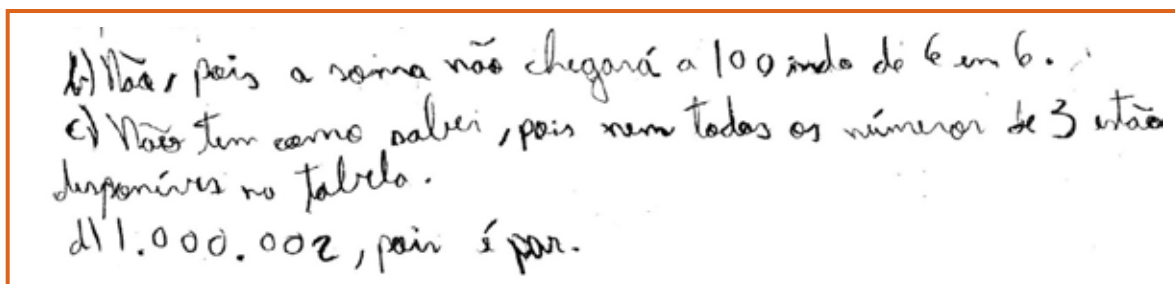 b) Não, pois a soma não chegará a 100 indo de 6 em 6.
c) Não tem como saber, pois nem todos os números de 3 estão
disponíves na tabela.
d) 1.000.002, pois é par.